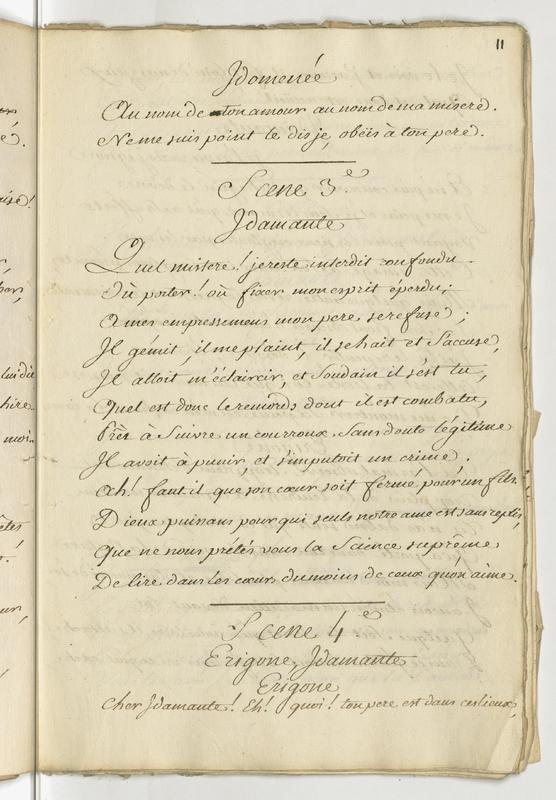 11
Idomenée
Au nom de ton amour au nom de ma misere.
Ne me suis point te dis je, obéis à ton pere.
Scene 3.e
Idamante
Quel mistere! je reste interdit confondu.
Où porter! où fixer mon esprit éperdu;
A mes empressemens mon pere se refuse;
Il gémit, il me plaint, il se hait et s'accuse,
Il alloit m'éclaircir, et soudain il s'est tu,
Quel est donc le remords dont il est combatu,
Près à suivre un courroux sans doute légitime
Il avoit à punir, et s'imputoit un crime.
Ah! faut il que son cœur soit fermé pour un fils.
Dieux puissans pour qui seuls notre ame est sans replis,
Que ne nous prétés vous la Science suprême
De lire dans les cœurs du moins de ceux qu'on aime.
Scene 4e
Erigone, Idamante
Erigone
Cher Idamante! Eh! quoi! ton pere est dans ces lieux,